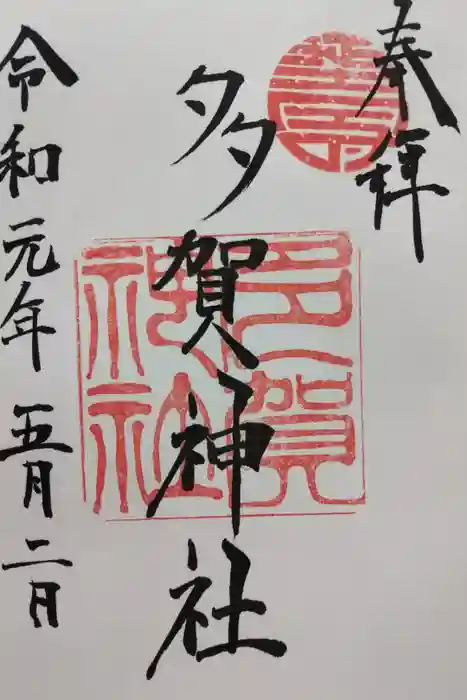 奉拝
多賀神社
多賀神社
令和元年五月二日